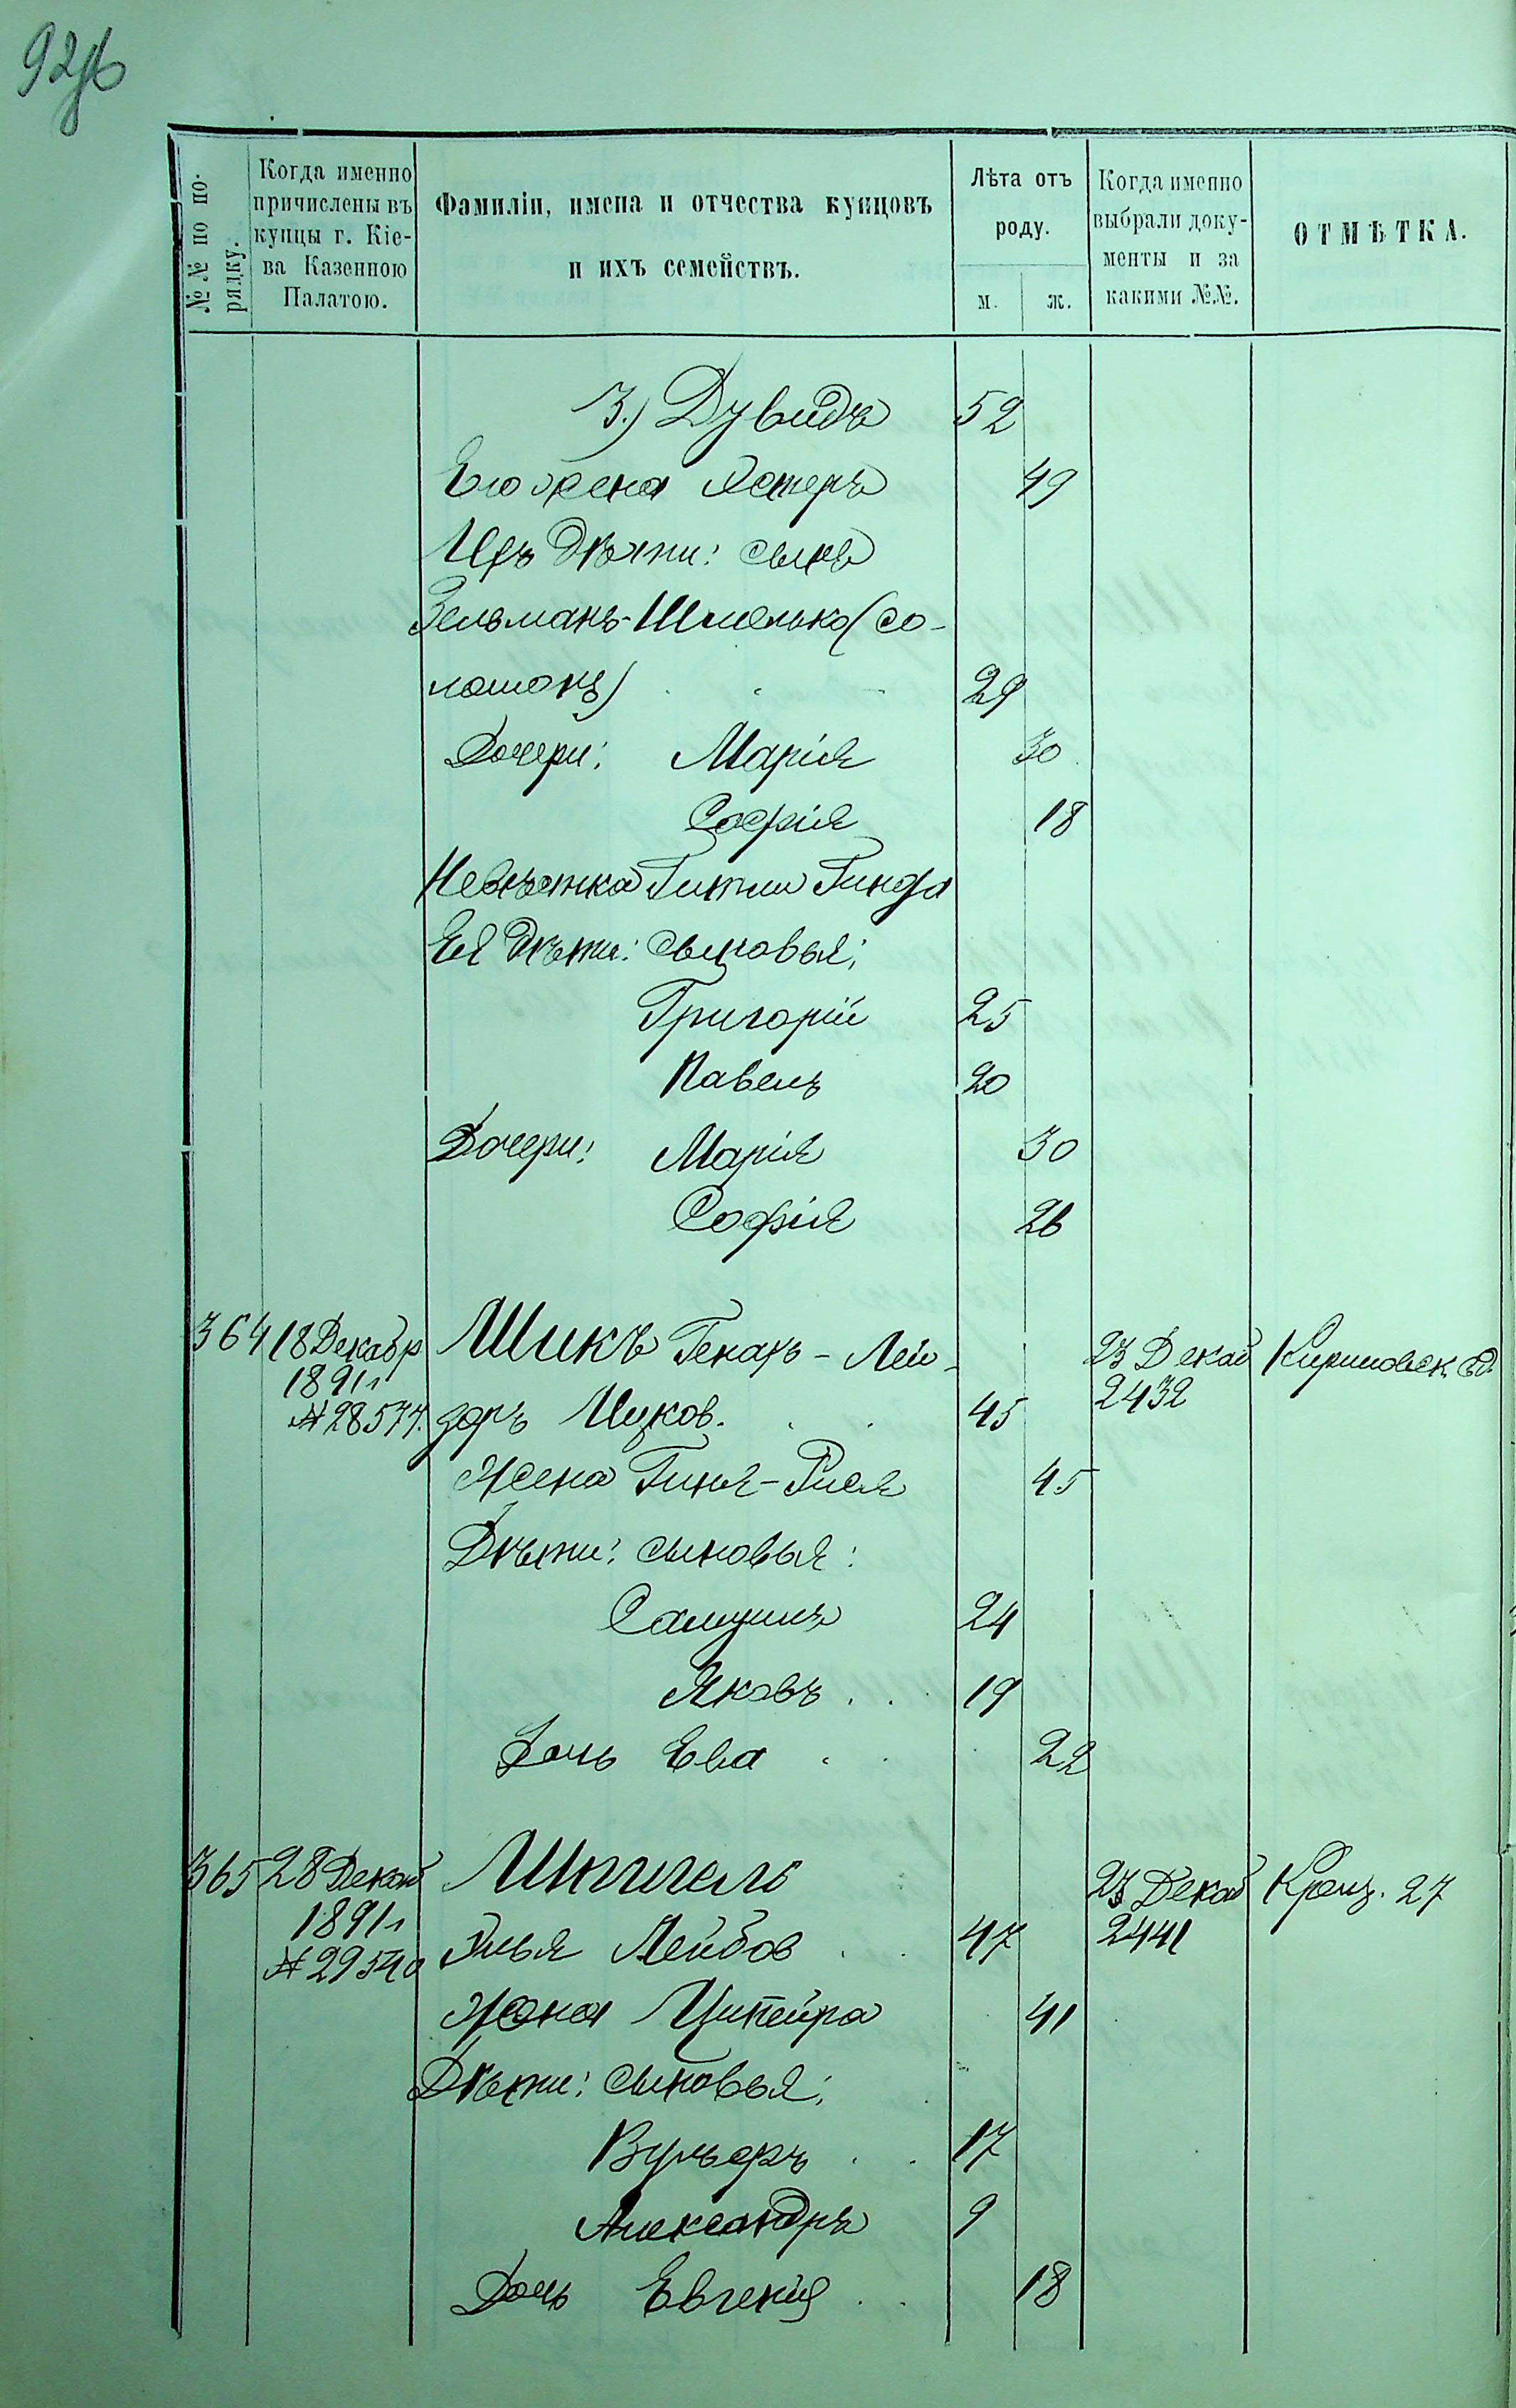 92об
№№ по по-
рядку.
Когда именно
причислены въ
купцы г. Кіе-
ва Казенною
Палатою.
Фамиліи, имена и отчества купцовъ
и ихъ семействъ.
Лѣта отъ
роду.
м. ж.
Когда именно
выбрали доку-
менты и за
какими №№.
ОТМѢТКА.
3.) Дувидъ 52
Его жена Эстеръ 49
Ихъ дѣти: сынъ
Зельманъ-Шмелько (Со-
ломонъ) 29
Дочери: Марія 30
Софія 18
Невѣстка Гитли Гинда
Ея дѣти: сыновья:
Григорій 25
Павелъ 20
Дочери: Марія 30
Софія 26
364 18 Декабр Шикъ Генахъ-Лей- 23 Декаб
1891г 2432
№28574. зоръ Ицков. 45
Жена Гиня-Рися 45
Дѣти: сыновья:
Самуилъ 24
Яковъ 19
Дочь Ева 22
365 28 Декаб Шпигель 23 Декаб 27
1891г Лейбов 47 2441
№29540
Жена Ципейра 41
Дѣти: сыновья:
Вульфъ 17
Александръ 9
Дочь Евгенія 18